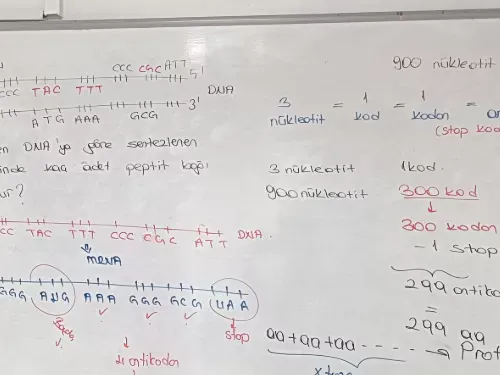 CCC CGC ATT
CCC TAC TTT 5'
DNA
ATG AAA GCG 3'
DNA'ya göre sentezlenen
kaç adet peptit bağı
?
CC TAC TTT CCC CGC ATT DNA.
mRNA
GGG AUG AAA GGG GCG UAA
stop
4 antikodon
900 nükleotit
3 nükleotit = 1 kod = 1 kodon =
(stop kod
3 nükleotit 1 kod.
900 nükleotit 300 kod
300 kodon
- 1 stop
299 antiko
=
299 aa
aa+aa+aa----- → Prot